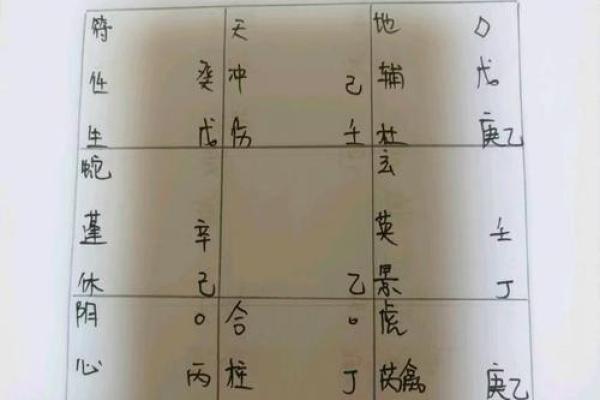 符 天 地 〇
任 癸 冲 己 辅 戊
生 戊 伤 壬 杜 庚乙
蛇 玄
蓬 辛 英 壬
休 己 乙 景 丁
阴 〇 合 〇 虎
心 丙 柱 丁 芮禽 庚乙